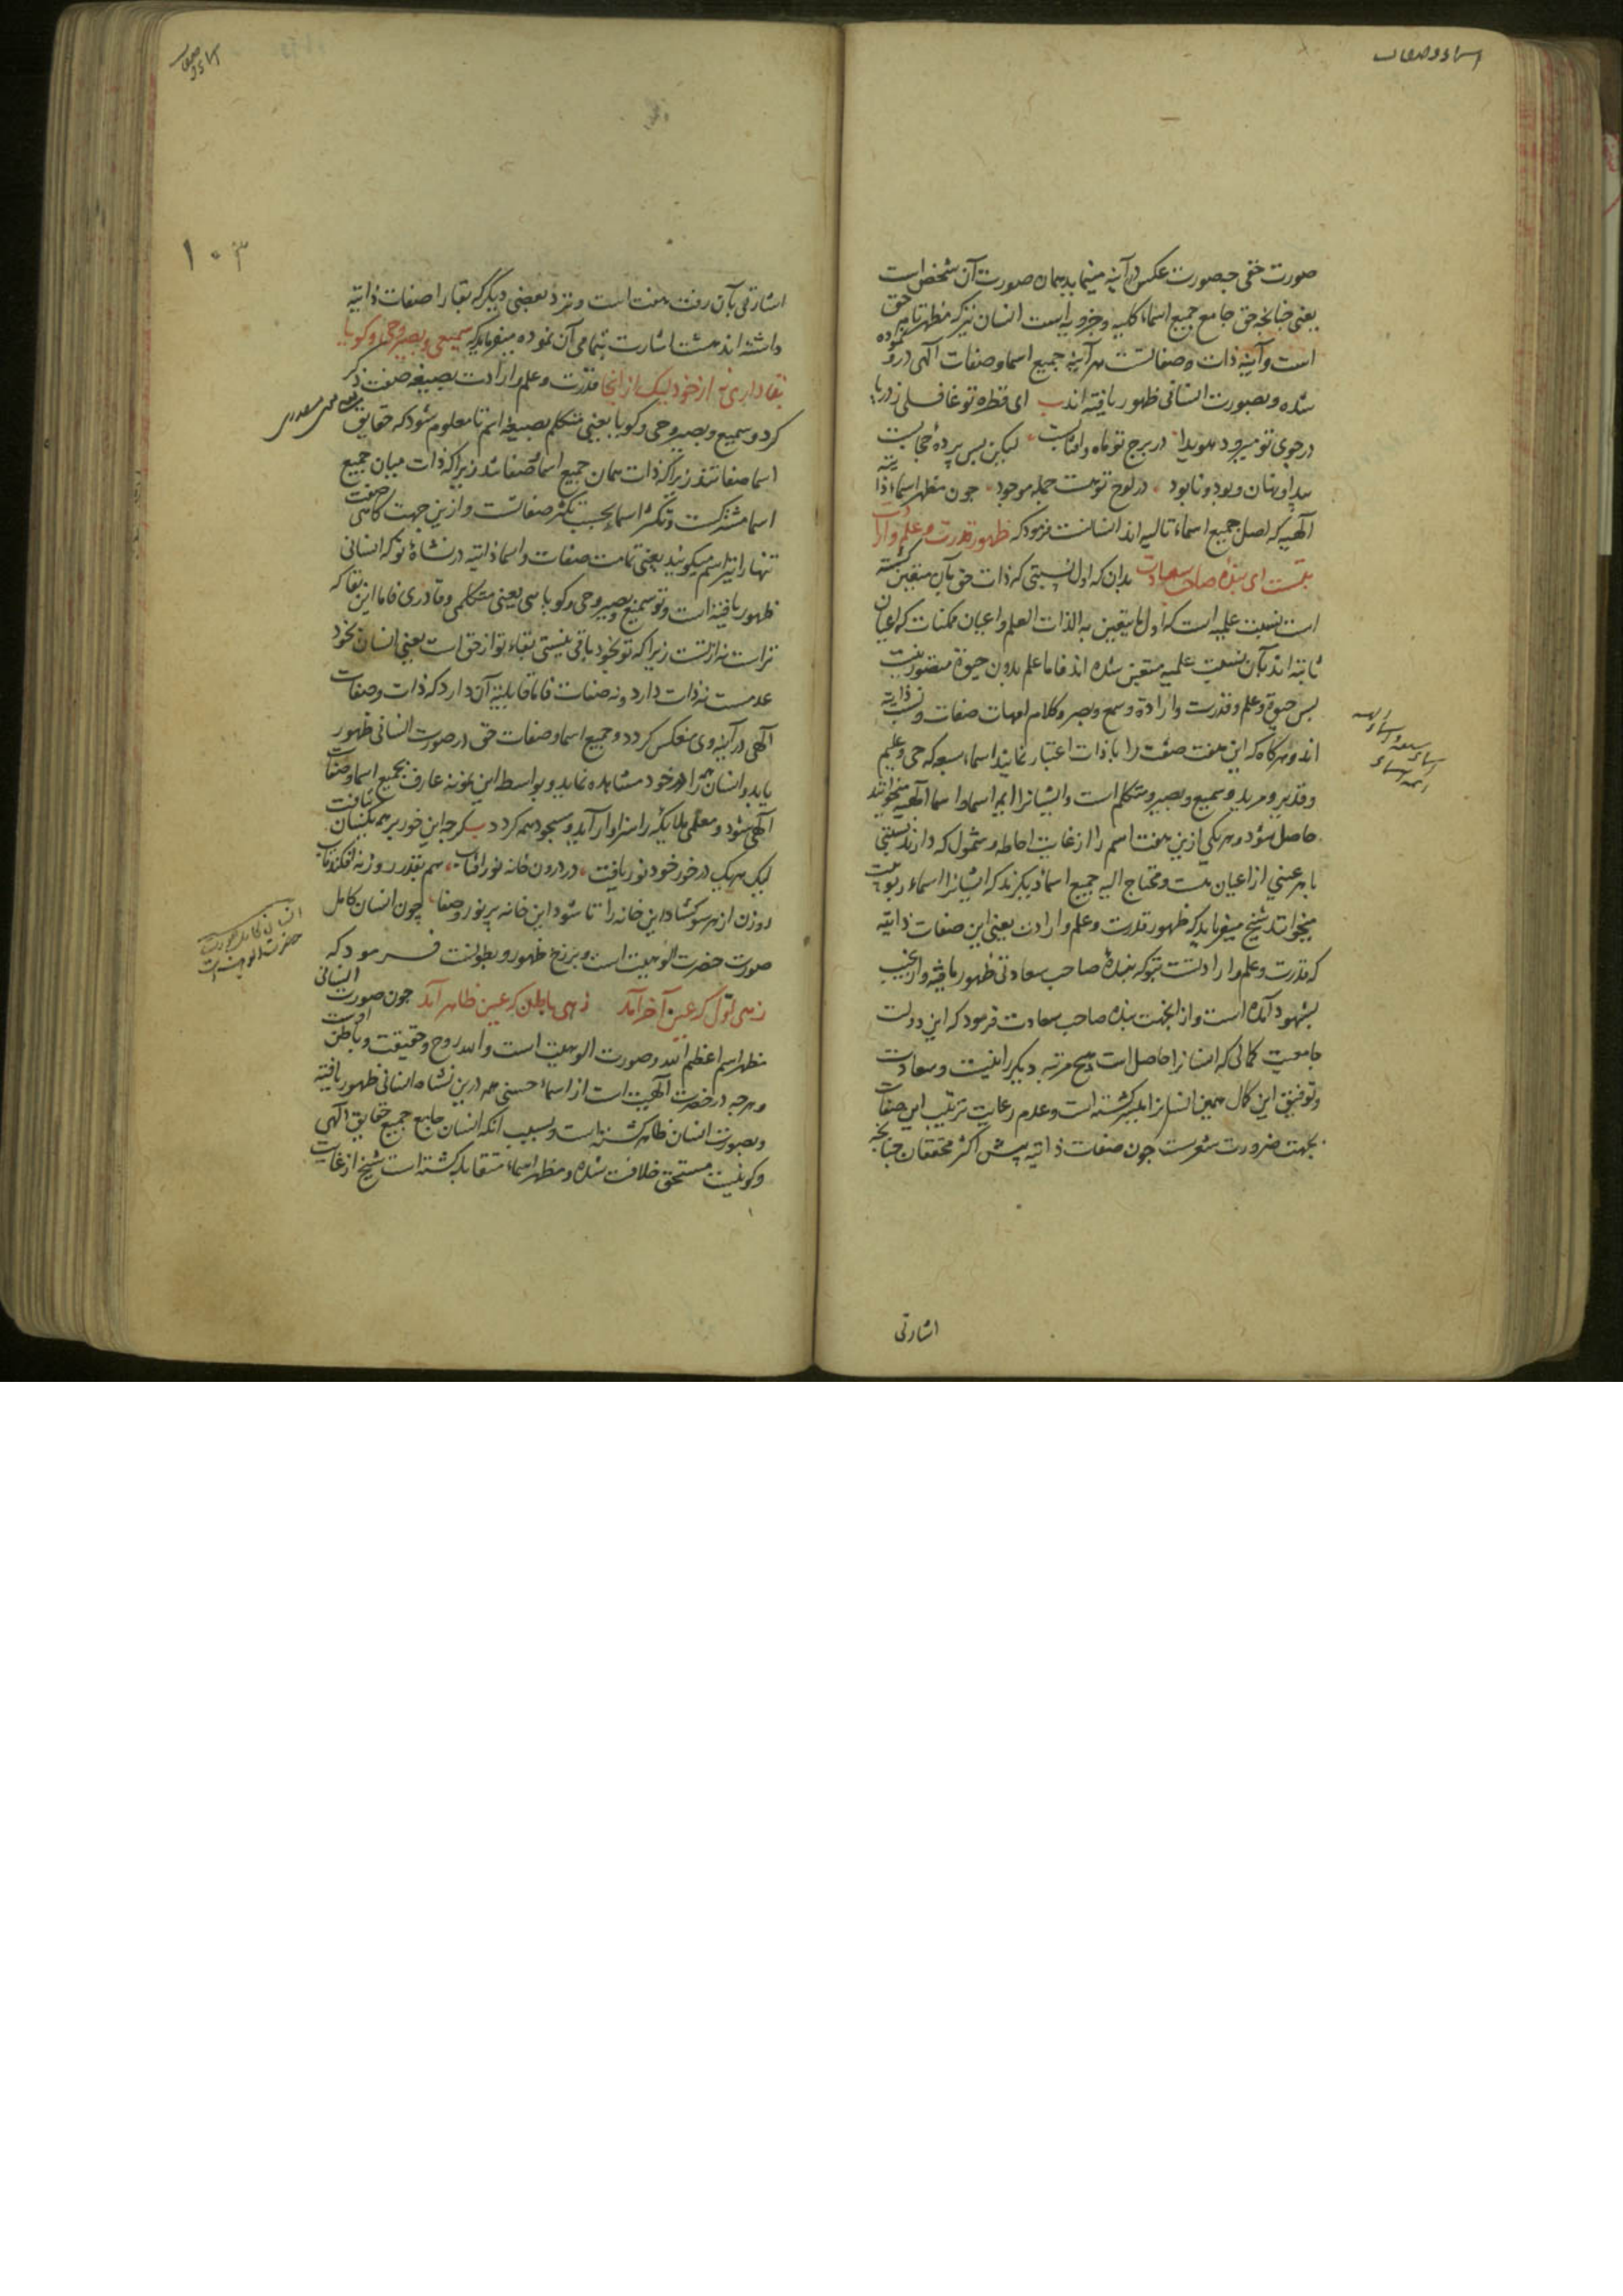 اسماء و صفات
صورت حقی چه صورت عکس در آینه مینماید همان صورت آن شخص است
یعنی چنانچه حق جامع جمیع اسماء کلیه و جزویه است انسان نیز که مظهر تام حق
است و آینه ذات و صفاتست هر آینه جمیع اسما و صفات الهی درو نموده
شده و بصورت انسانی ظهور یافته‌اند ای قطره تو غافلی ز دریا
در جوی تو میرود هویدا در برج تو ماه و آفتابست لیکن پس پردهٔ حجابست
پیدا و نهان و بود و نابود در لوح تو هست جمله موجود چون مظهر اسماء ذاتیه
الهیه که اصل جمیع اسماء تالیه‌اند انسانست فرمود که ظهور قدرت و علم و ارادت
بتست ای بنده صاحب سعادت بدان که اول نسبتی که ذات حق بآن متعین گشته
است نسبت علمیه است که اول ما یتعین به الذات العلم و اعیان ممکنات که اعیان
ثابته‌اند بآن نسبت علمیه متعین شده‌اند فاما علم بدون حیوة متصور نیست
پس حیوة و علم و قدرت و ارادة و سمع و بصر و کلام امهات صفات و نسب ذاتیه
اند و هرگاه که این هفت صفت را با ذات اعتبار نمایند اسماء سبعه که حی و علیم
و قدیر و مرید و سمیع و بصیر و متکلم است و ایشانرا ایمه اسما و اسما الهیه میخوانند
حاصل شود و هر یکی ازین هفت اسم را از غایت احاطه و شمول که دارند نسبتی
با هر عینی از اعیان هست و محتاج الیه جمیع اسماء دیگرند که ایشانرا اسماء ربوبیت
میخوانند شیخ میفرماید که ظهور قدرت و علم و ارادت یعنی این صفات ذاتیه
که قدرت و علم و ارادتست بتو که بندهٔ صاحب سعادتی ظهور یافته و از غیب
بشهود آمده است و از اینجهت بنده صاحب سعادت فرمود که این دولت
جامعیت کمالی که انسانرا حاصل است هیچ مرتبه دیگر را نیست و سعادت
و توفیق این کمال همین انسانرا میسر گشته است و عدم رعایت ترتیب این صفات
بجهت ضرورت شعرست چون صفات ذاتیه پیش اکثر محققان چنانچه
اسماء سبعه و اسماء الهیه
ائمه اسماء
اشارتی
اسماء و صفات
۱۰۳
اشارتی بآن رفت هفت است و نزد بعضی دیگر که بقا را صفات ذاتیه
داشته‌اند هشت اشارت بتمامی آن نموده میفرماید که سمیعی و بصیر و حی و گویا
بقا داری نه از خود لیک از آنجا قدرت و علم و ارادت بصیغه صفت ذکر
کرد و سمیع و بصیر و حی و گویا یعنی متکلم بصیغه اسم تا معلوم شود که حقایق
اسما صفاتند زیرا که ذات همان جمیع اسما و صفات شد زیرا که ذات میان جمیع
اسما مشترکست و تکثر اسما بحسب تکثر صفاتست و ازین جهت گاهی صفت
تنها را نیز اسم میگویند یعنی تمامت صفات و اسما ذاتیه در نشاهٔ تو که انسانی
ظهور یافته است و تو سمیع و بصیر و حی و گویاسی یعنی متکلمی و قادری فاما این بقا که
تراست نه از تست زیرا که تو بخود باقی نیستی بقاء تو از حق است یعنی انسان بخود
عدمست نه ذات دارد و نه صفات فاما قابلیة آن دارد که ذات و صفات
الهی در آینه وی منعکس گردد و جمیع اسما و صفات حق در صورت انسانی ظهور
یابد و انسان همه را در خود مشاهده نماید و بواسطه این نمونه عارف بجمیع اسما و صفات
الهی شود و معلمی ملایکه را سزاوار آید و مسجود همه گردد گرچه این خور بر همه یکسان بتافت
لیک هر یک در خور خود نور یافت در درون خانه نور آفتاب هم بقدر روزنه افکند تاب
روزن از هر سو گشاد این خانه را تا شود این خانه پر نور و صفا چون انسان کامل
صورت حضرت الوهیت است و برزخ ظهور و بطونست فرمود که
زهی اول که عین آخر آمد زهی باطن که عین ظاهر آمد چون صورت انسانی
مظهر اسم اعظم الله و صورت الوهیت است و الله روح و حقیقت و باطن اوست
و هرچه در حضرت الهیت است از اسماء حسنی همه درین نشاه انسانی ظهور یافته
و بصورت انسان ظاهر گشته است و بسبب آنکه انسان جامع جمیع حقایق الهی
و کونیست مستحق خلافت شده و مظهر اسماء متقابله گشته است شیخ از غایت
انسان کامل صورت
حضرت الوهیت است